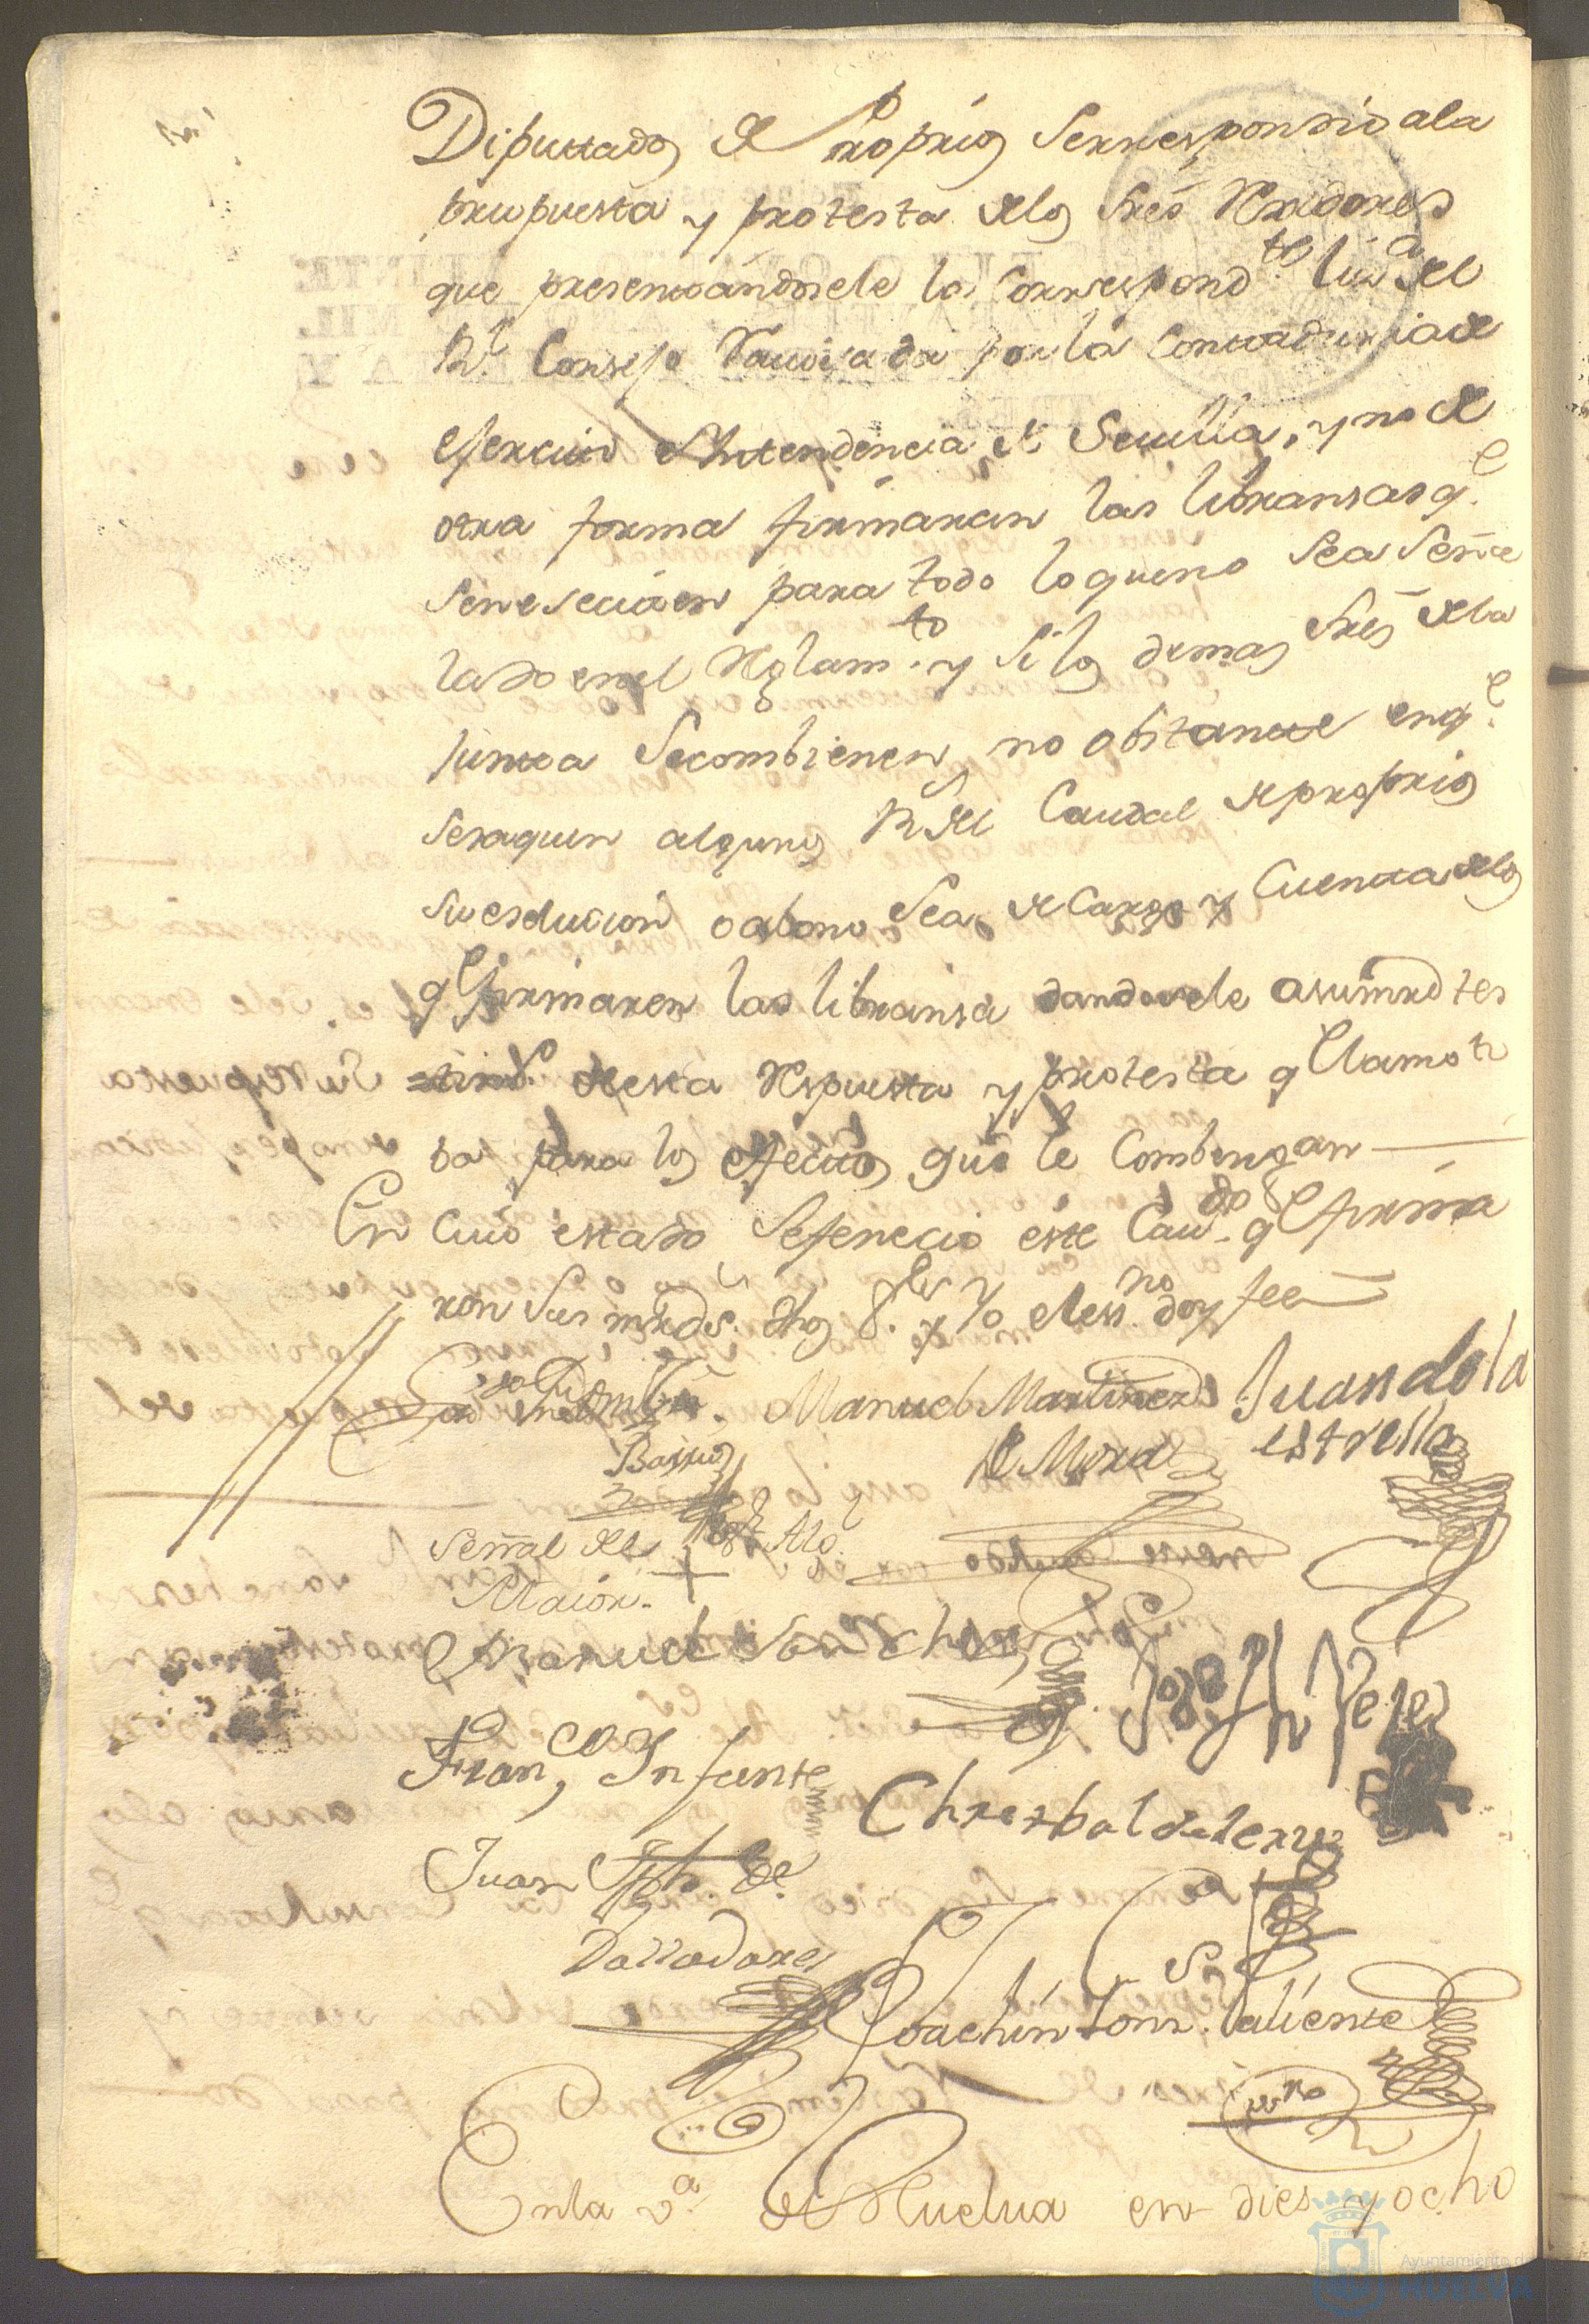 Diputtados de Proprios se rrespondio ala
propuesta y protesta delos Sres Rexidores
que presentandosele la Correspond.te liz.a del
R.l Consejo tauoisada por la Contaduria de
exercito e Yntendencia de Seuilla, y no de
otra forma firmaran las libransas q.e
se nesecitaren para todo lo que no sea Seña
lado en el Reglam.to y si los demas Sres dela
Junta Secombienen no obstante en q.e
Sesaquen algunos R.s del Caudal de proprios
su esclucion o abono Sea de Cargo y Cuenta delos
q.e firmaren las libransa dandosele asumrd tes
timo. de esta Respuesta y protesta q.e llamoti
ba para los efectos que le Combengan
En cuio estado Sefenecio este Cau.do q.e firma
ron Sus mrds. dhos S.res y Yo el ess.no doy fee
Barrios
Manuel Martinez
de Mora
Juan de la
estrella
Señal del + Alg.l
Maior.
Manuel Sanchez
Joseph Peres
Fran.co Infante
Christobal de
Juan Jph. de
Valladares
Joachin Valiente
ess.no
En la v.a de Huelua en dies y ocho
Ayuntamiento de
HUELVA